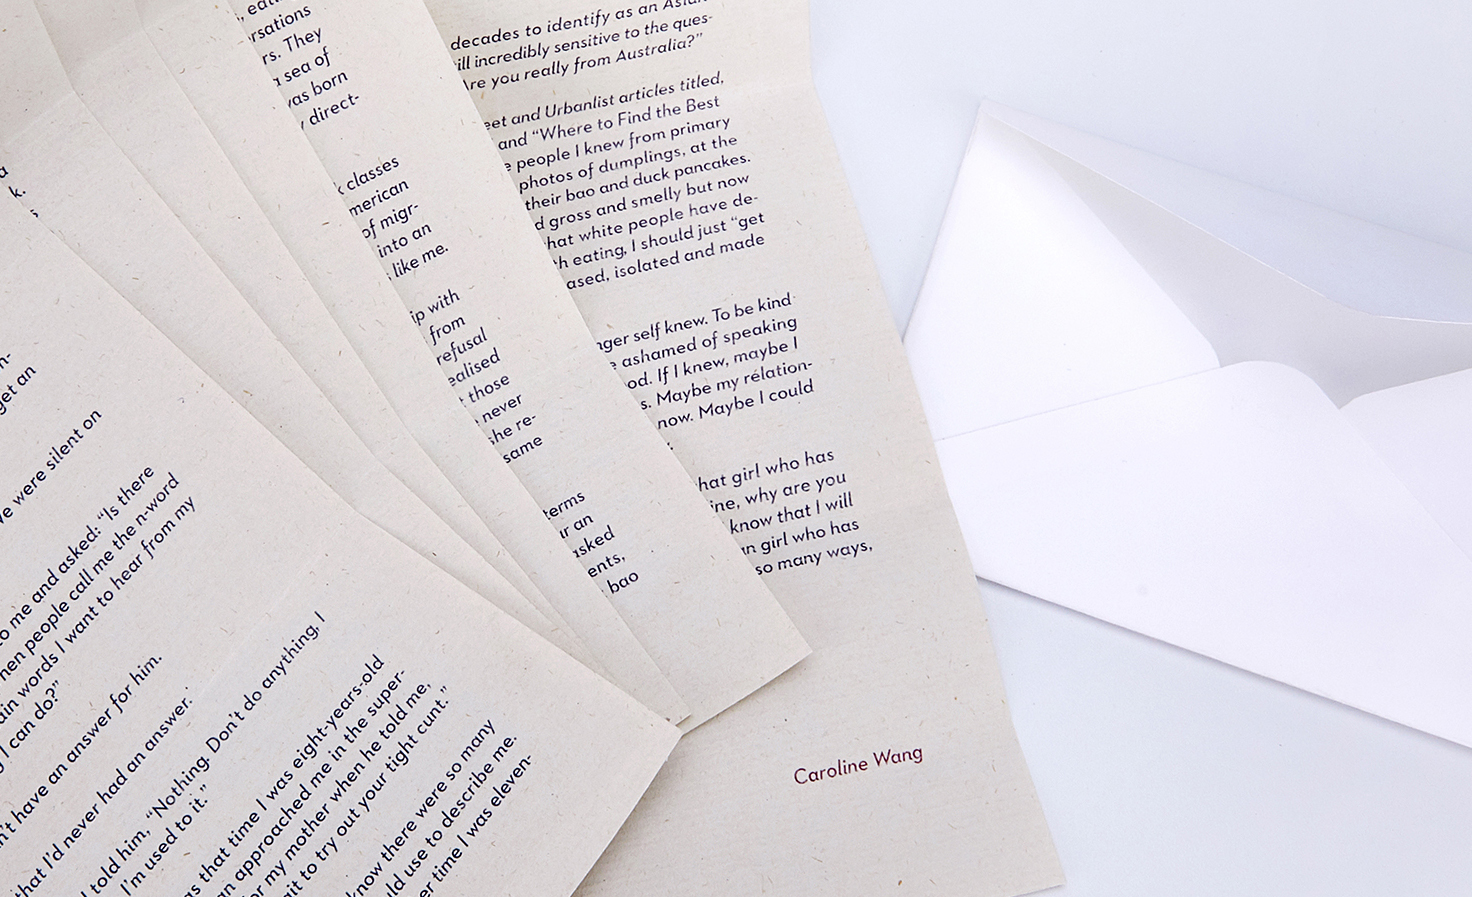 k.
get an
were silent on
me and asked: “Is there
people call me the n-word
words I want to hear from my
I can do?”
have an answer for him.
that I’d never had an answer.
told him, “Nothing. Don’t do anything, I
I’m used to it.”
that time I was eight-years-old
approached me in the super-
my mother when he told me,
to try out your tight cunt.”
know there were so many
use to describe me.
time I was eleven-
They
sea of
was born
direct-
classes
of migr-
into an
like me.
with
from
refusal
those
never
she re-
same
terms
an
bao
decades to identify as an
incredibly sensitive to the ques-
Are you really from Australia?”
and Urbanlist articles titled,
and “Where to Find the Best
people I knew from primary
photos of dumplings, at the
their bao and duck pancakes.
gross and smelly but now
that white people have de-
eating, I should just “get
isolated and made
self knew. To be kind
ashamed of speaking
If I knew, maybe I
Maybe my relation-
now. Maybe I could
that girl who has
why are you
know that I will
girl who has
so many ways,
Caroline Wang